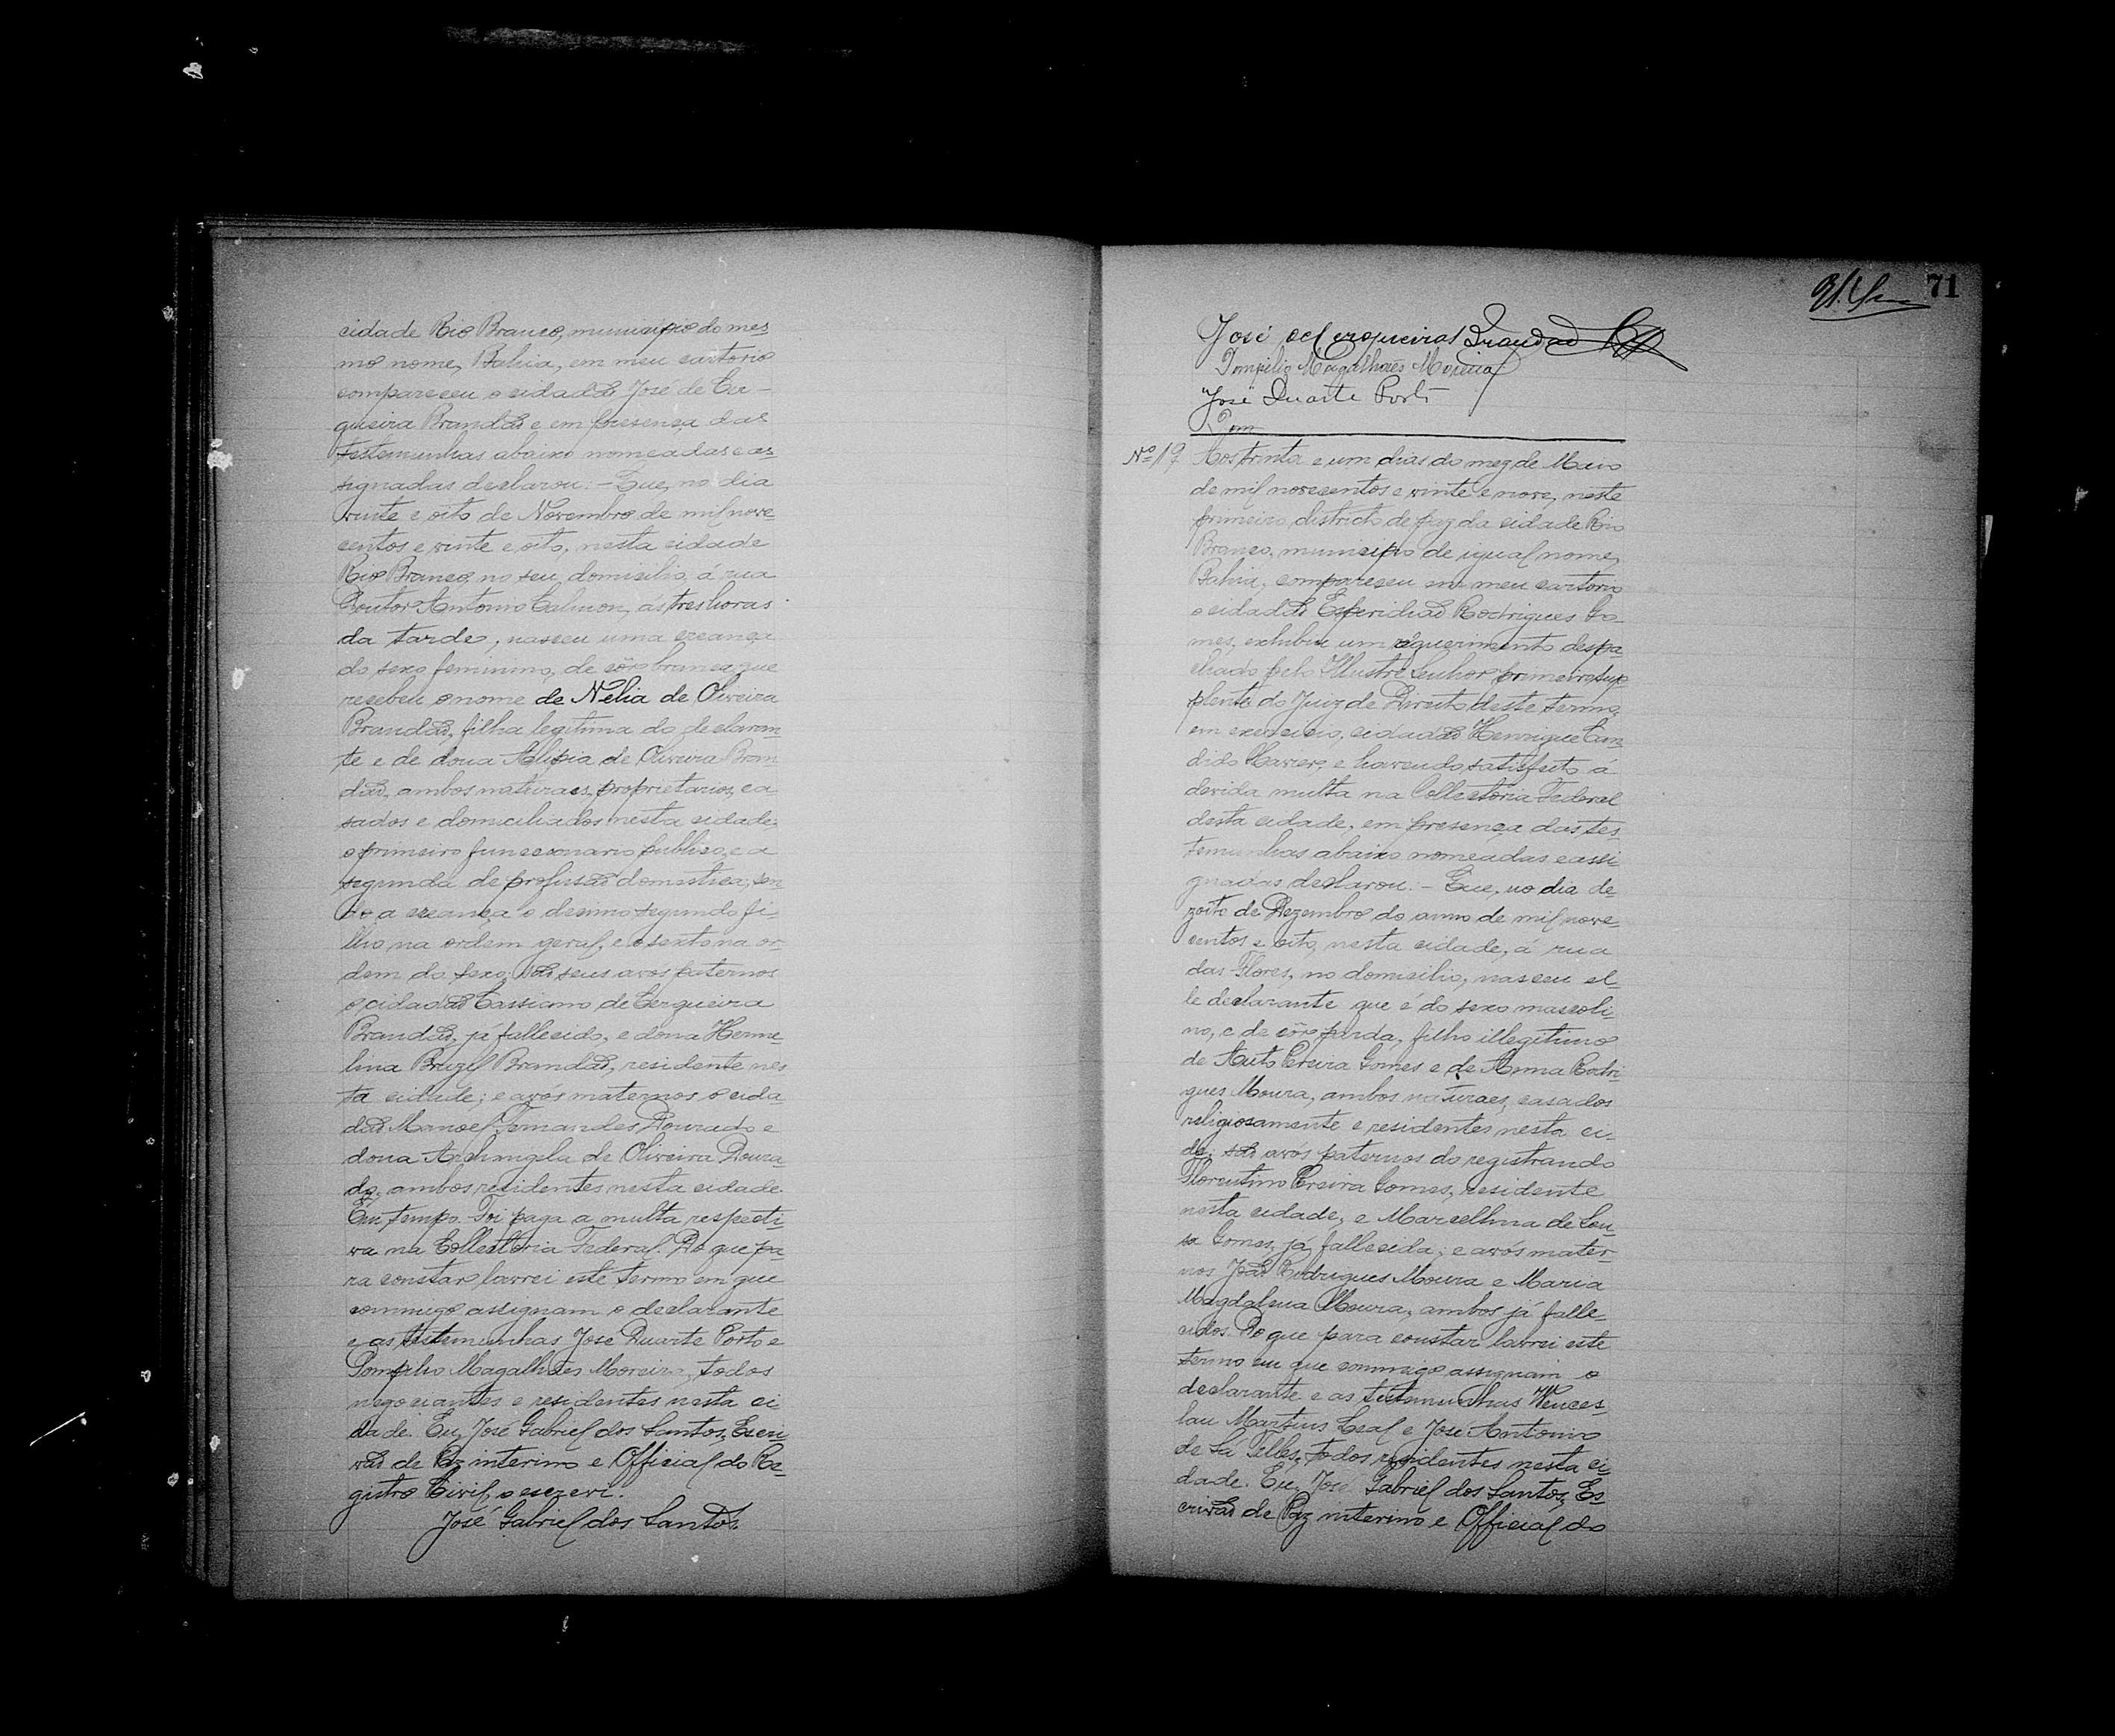 cidade Rio Branco, municipio do mes-
mo nome, Bahia, em meu cartorio
compareceu o cidadão José de Cer-
queira Brandão e em presença das
testemunhas abaixo nomeadas e as-
signadas declarou: - Que, no dia
vinte e oito de Novembro de mil nove-
centos e vinte e oito, nesta cidade
Rio Branco, no seu domicilio, á rua
Doutor Antonio Calmon, ás tres horas
da tarde, nasceu uma creança
do sexo feminino, de côr branca, que
recebeu o nome de Nélia de Oliveira
Brandão, filha legitima do declaran-
te e de dona Alipia de Oliveira Bran-
dão, ambos naturaes, proprietarios, ca-
sados e domiciliados nesta cidade;
o primeiro funccionario publico, e a
segunda de profissão domestica; sen-
do a creança o decimo segundo fi-
lho na ordem geral, e o sexto na or-
dem do sexo; são seus avós paternos
o cidadão Cassiano de Cerqueira
Brandão, já fallecido, e dona Herme-
lina Brazil Brandão, residente nes-
ta cidade; e avós maternos o cida-
dão Manoel Fernandes Dourado e
dona Archangela de Oliveira Doura-
do, ambos residentes nesta cidade.
Em tempo. Foi paga a multa respecti-
va na Collectoria Federal. Do que pa-
ra constar lavrei este termo em que
commigo assignam o declarante
e as testemunhas José Duarte Porto e
Pompilio Magalhães Moreira, todos
negociantes e residentes nesta ci-
dade. Eu, José Gabriel dos Santos, Escri-
vão de Paz interino e Official do Re-
gistro Civil, o escrevi.
José Gabriel dos Santos.
71
José de Cerqueira Brandão
Pompilio Magalhães Moreira
José Duarte Porto
Nº 19 Aos trinta e um dias do mez de Maio
de mil novecentos e vinte e nove, neste
primeiro districto de paz da cidade Rio
Branco, municipio de igual nome,
Bahia, compareceu em meu cartorio
o cidadão Esperidião Rodrigues Go-
mes, exhibiu um requerimento despa-
chado pelo Illustre Senhor primeiro sup-
plente do Juiz de Direito deste termo,
em exercicio, cidadão Henrique Can-
dido Xavier, e havendo satisfeito á
devida multa na Collectoria Federal
desta cidade, em presença das tes-
temunhas abaixo nomeadas e assi-
gnadas declarou: - Que, no dia de-
zoito de Dezembro do anno de mil nove-
centos e oito, nesta cidade, á rua
das Flores, no domicilio, nasceu el-
le declarante que é do sexo mascoli-
no, e de côr parda, filho illegitimo
de Auto Pereira Gomes e de Anna Rodri-
gues Moura, ambos naturaes, casados
religiosamente e residentes nesta ci-
de; são avós paternos do registrando
Florentino Pereira Gomes, residente
nesta cidade, e Marcellina de Sou-
sa Gomes, já fallecida; e avós mater-
nos João Rodrigues Moura e Maria
Magdalena Moura, ambos já falle-
cidos. Do que para constar lavrei este
termo em que commigo assignam o
declarante e as testemunhas Wences-
lau Martins Leal e José Antonio
de Sá Telles, todos residentes nesta ci-
dade. Eu, José Gabriel dos Santos, Es-
crivão de Paz interino e Official do